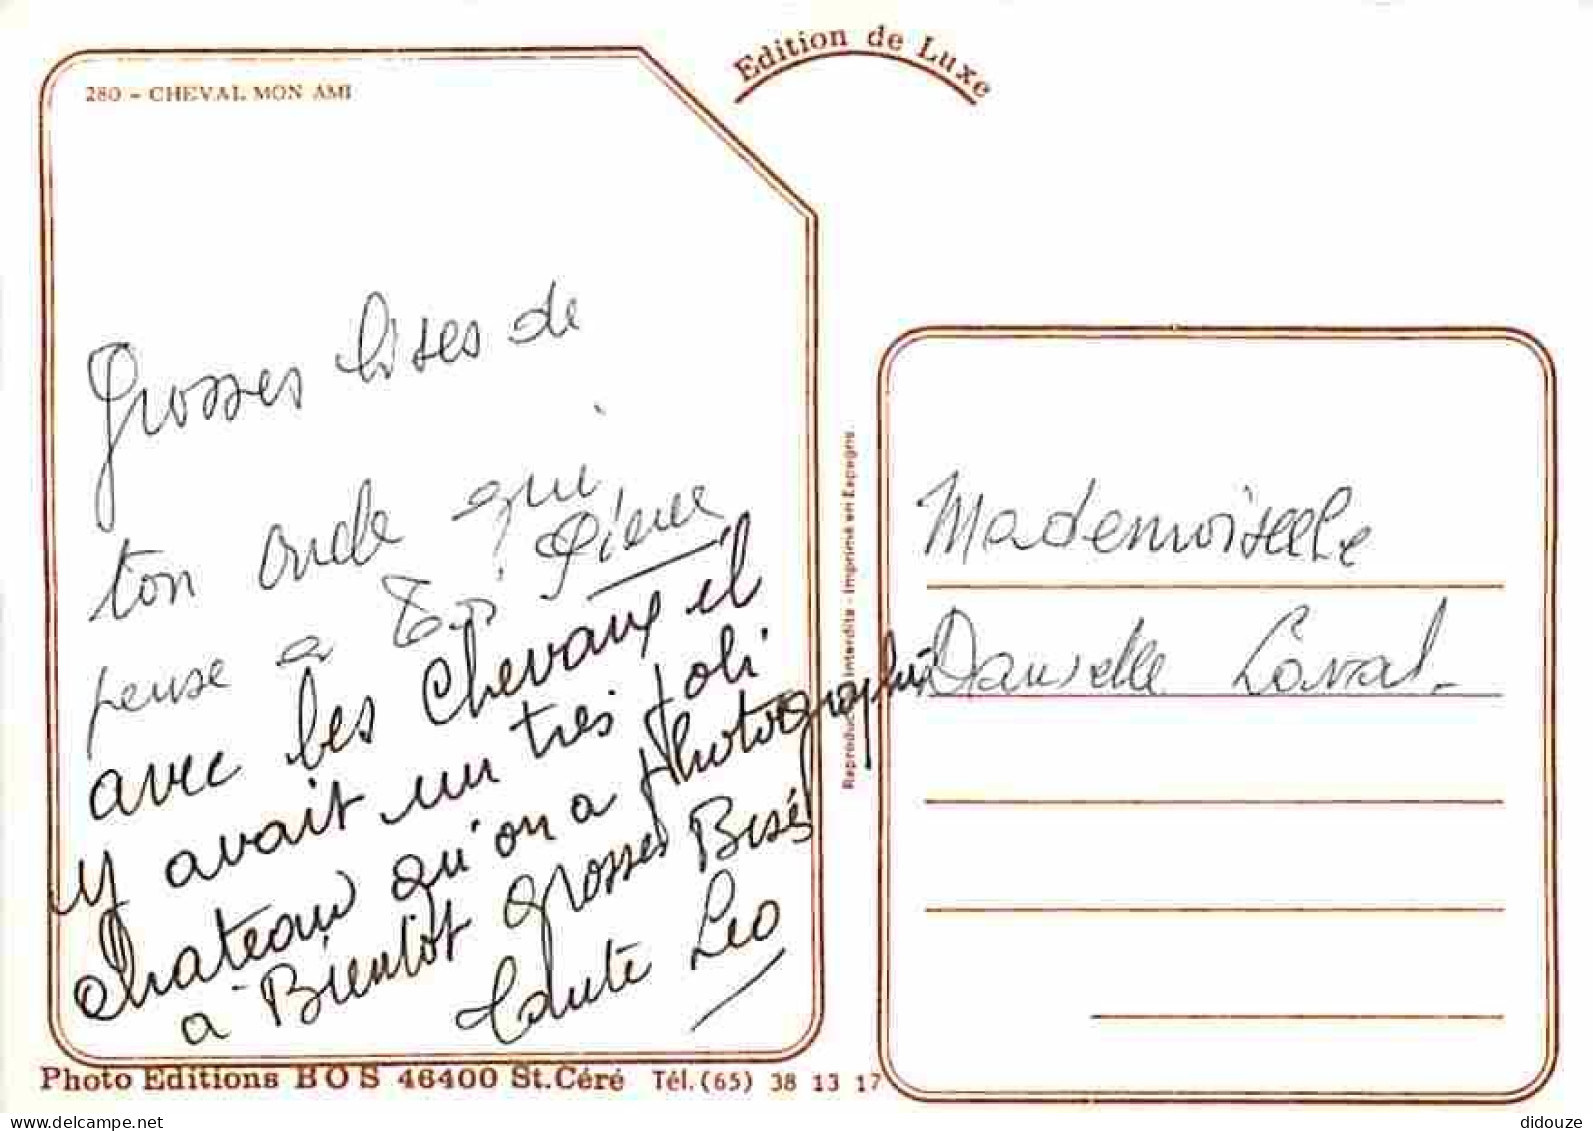 280 - CHEVAL MON AMI
Edition de Luxe
Grosses bises de
ton oncle qui
pense a Toi Pierre
avec les Chevaux il
y avait un très joli
chateau qu'on a photographié
a Bientot grosses Bises
tante Leo
Reproduction Interdite - Imprimé en Espagne
Mademoiselle
Danielle Laval.
Photo Editions BOS 46400 St.Céré Tél.(65) 38 13 17
www.delcampe.net
didouze